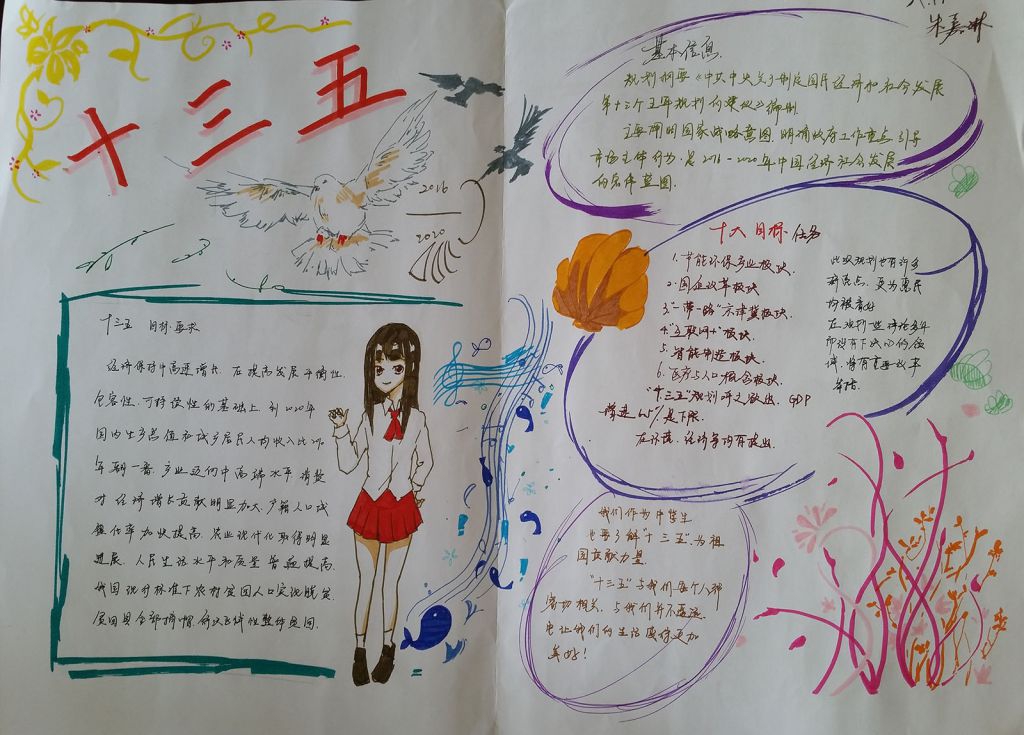 十三五
2016
2020
朱嘉琳
基本信息
规划纲要《中共中央关于制定国民经济和社会发展
第十三个五年规划的建议》编制
主要阐明国家战略意图.明确政府工作重点.引导
市场主体行为.是2016-2020年中国经济社会发展
的宏伟蓝图.
十三五 目标.要求
经济保持中高速增长.在提高发展平衡性.
包容性.可持续性的基础上.到2020年
国内生产总值和城乡居民人均收入比2010
年翻一番.产业迈向中高端水平.消费
对经济增长贡献明显加大.户籍人口城
镇化率加快提高.农业现代化取得明显
进展.人民生活水平和质量普遍提高.
我国现行标准下农村贫困人口实现脱贫.
贫困县全部摘帽.解决区域性整体贫困.
十大目标任务
1.节能环保产业板块.
2.国企改革板块
3."一带一路"京津冀板块.
4."互联网+"板块.
5.智能制造板块.
6.医疗与人口概念板块.
"十三五"规划
GDP
增速6.5%是下限.
在环保.经济等均有提出.
此次规划也有许多
新亮点.更为惠民
均被看好
在
我们作为中学生
也要了解"十三五"为祖
国贡献力量.
"十三五"与我们每个人都
密切相关.与我们并不遥远.
它让我们的生活变得更加
美好!